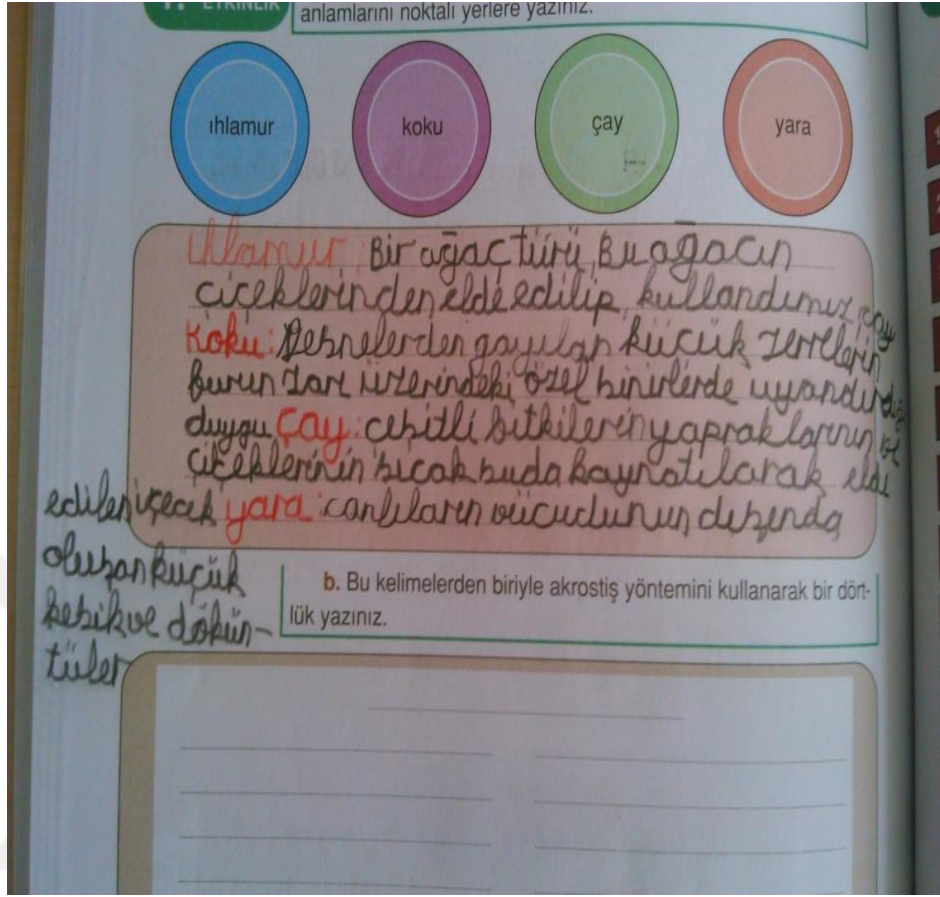 ETKİNLİK
anlamlarını noktalı yerlere yazınız.
ıhlamur
koku
çay
yara
ıhlamur: Bir ağaç türü, Bu ağacın
çiçeklerinden elde edilip, kullandımız çay
Koku: Nesnelerden yayılan küçük zerrelerin
burun zarı üzerindeki özel sinirlerde uyandırdığı
duygu Çay: çeşitli bitkilerin yapraklarının ve
çiçeklerinin sıcak suda kaynatılarak elde
edilen içecek yara: canlıların vücudunun dışında
oluşan küçük
kesik ve dökün-
tüler
b. Bu kelimelerden biriyle akrostiş yöntemini kullanarak bir dört-
lük yazınız.